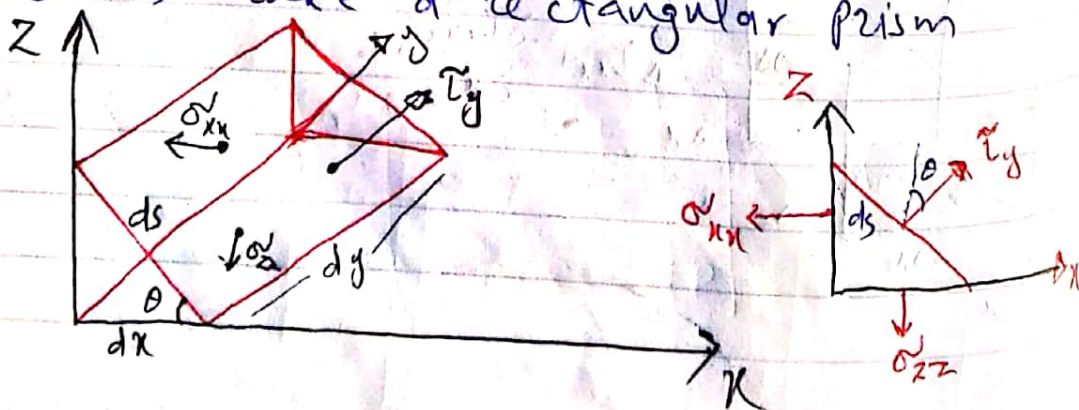 a rectangular prism
Z
y
τy
σxx
ds
σz
θ
dy
dx
x
Z
θ
τy
σxx
ds
x
σzz